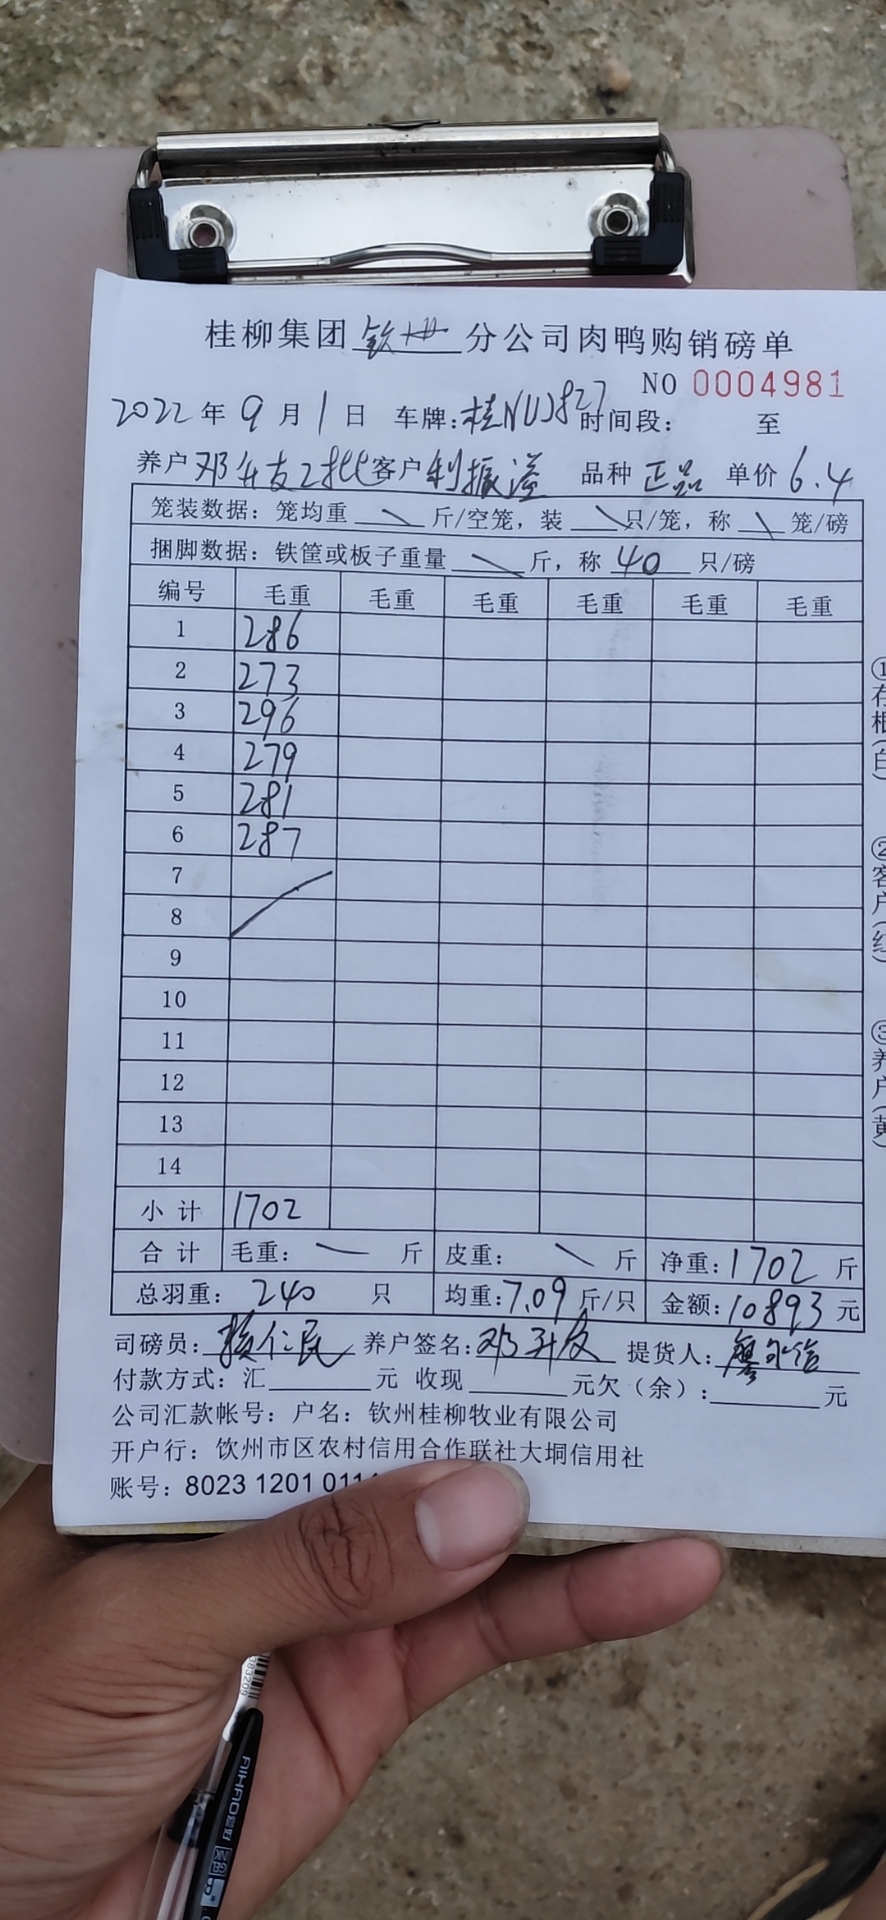 桂柳集团 钦州 分公司肉鸭购销磅单
NO 0004981
2022 年 9 月 1 日 车牌: 桂NUJ827 时间段: 至
养户 邓升友2批 客户 利振溢 品种 正品 单价 6.4
笼装数据: 笼均重 \ 斤/空笼, 装 \ 只/笼, 称 \ 笼/磅
捆脚数据: 铁筐或板子重量 \ 斤, 称 40 只/磅
编号 毛重 毛重 毛重 毛重 毛重 毛重
1 286
2 273
3 296
4 279
5 281
6 287
7
8
9
10
11
12
13
14
小计 1702
合计 毛重: — 斤 皮重: \ 斤 净重: 1702 斤
总羽重: 240 只 均重: 7.09 斤/只 金额: 10893 元
司磅员: 仁民 养户签名: 邓升友 提货人: 廖
付款方式: 汇 元 收现 元欠（余）: 元
公司汇款帐号: 户名: 钦州桂柳牧业有限公司
开户行: 饮州市区农村信用合作联社大垌信用社
账号: 8023 1201 011
①存根（白）
②客户（红）
③养户（黄）
AIHAO